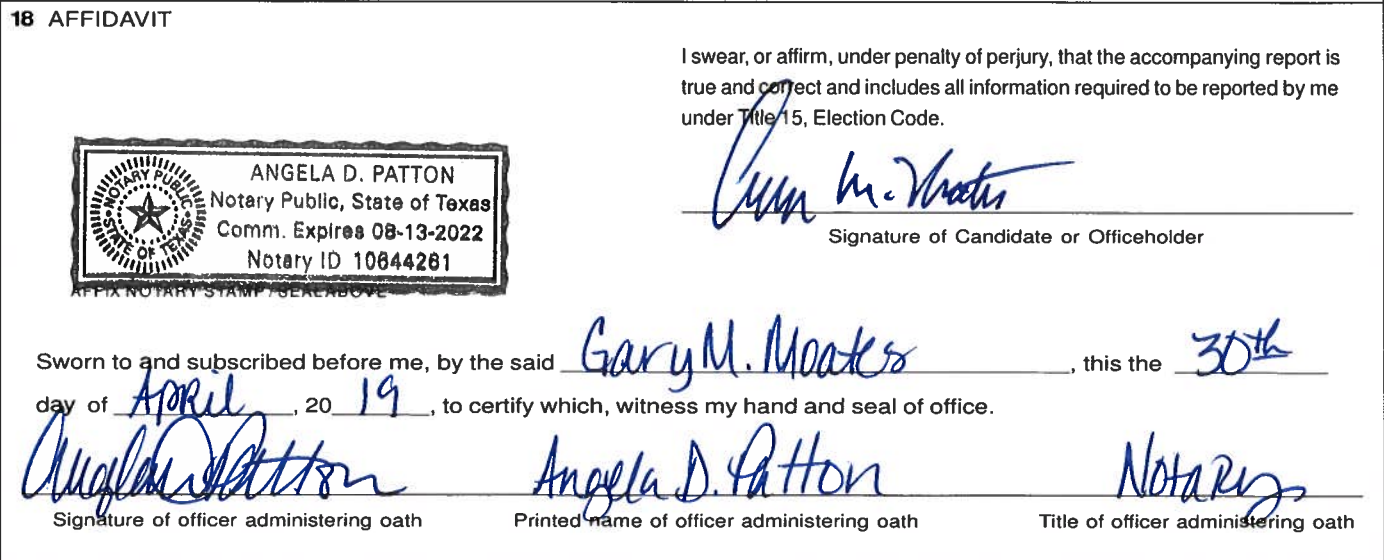 18 AFFIDAVIT
I swear, or affirm, under penalty of perjury, that the accompanying report is
true and correct and includes all information required to be reported by me
under Title 15, Election Code.
NOTARY PUBLIC
STATE OF TEXAS
ANGELA D. PATTON
Notary Public, State of Texas
Comm. Expires 08-13-2022
Notary ID 10644261
AFFIX NOTARY STAMP / SEAL ABOVE
Signature of Candidate or Officeholder
Sworn to and subscribed before me, by the said Gary M. Moates, this the 30th
day of April, 20 19, to certify which, witness my hand and seal of office.
Angela D. Patton Angela D. Patton Notary
Signature of officer administering oath Printed name of officer administering oath Title of officer administering oath